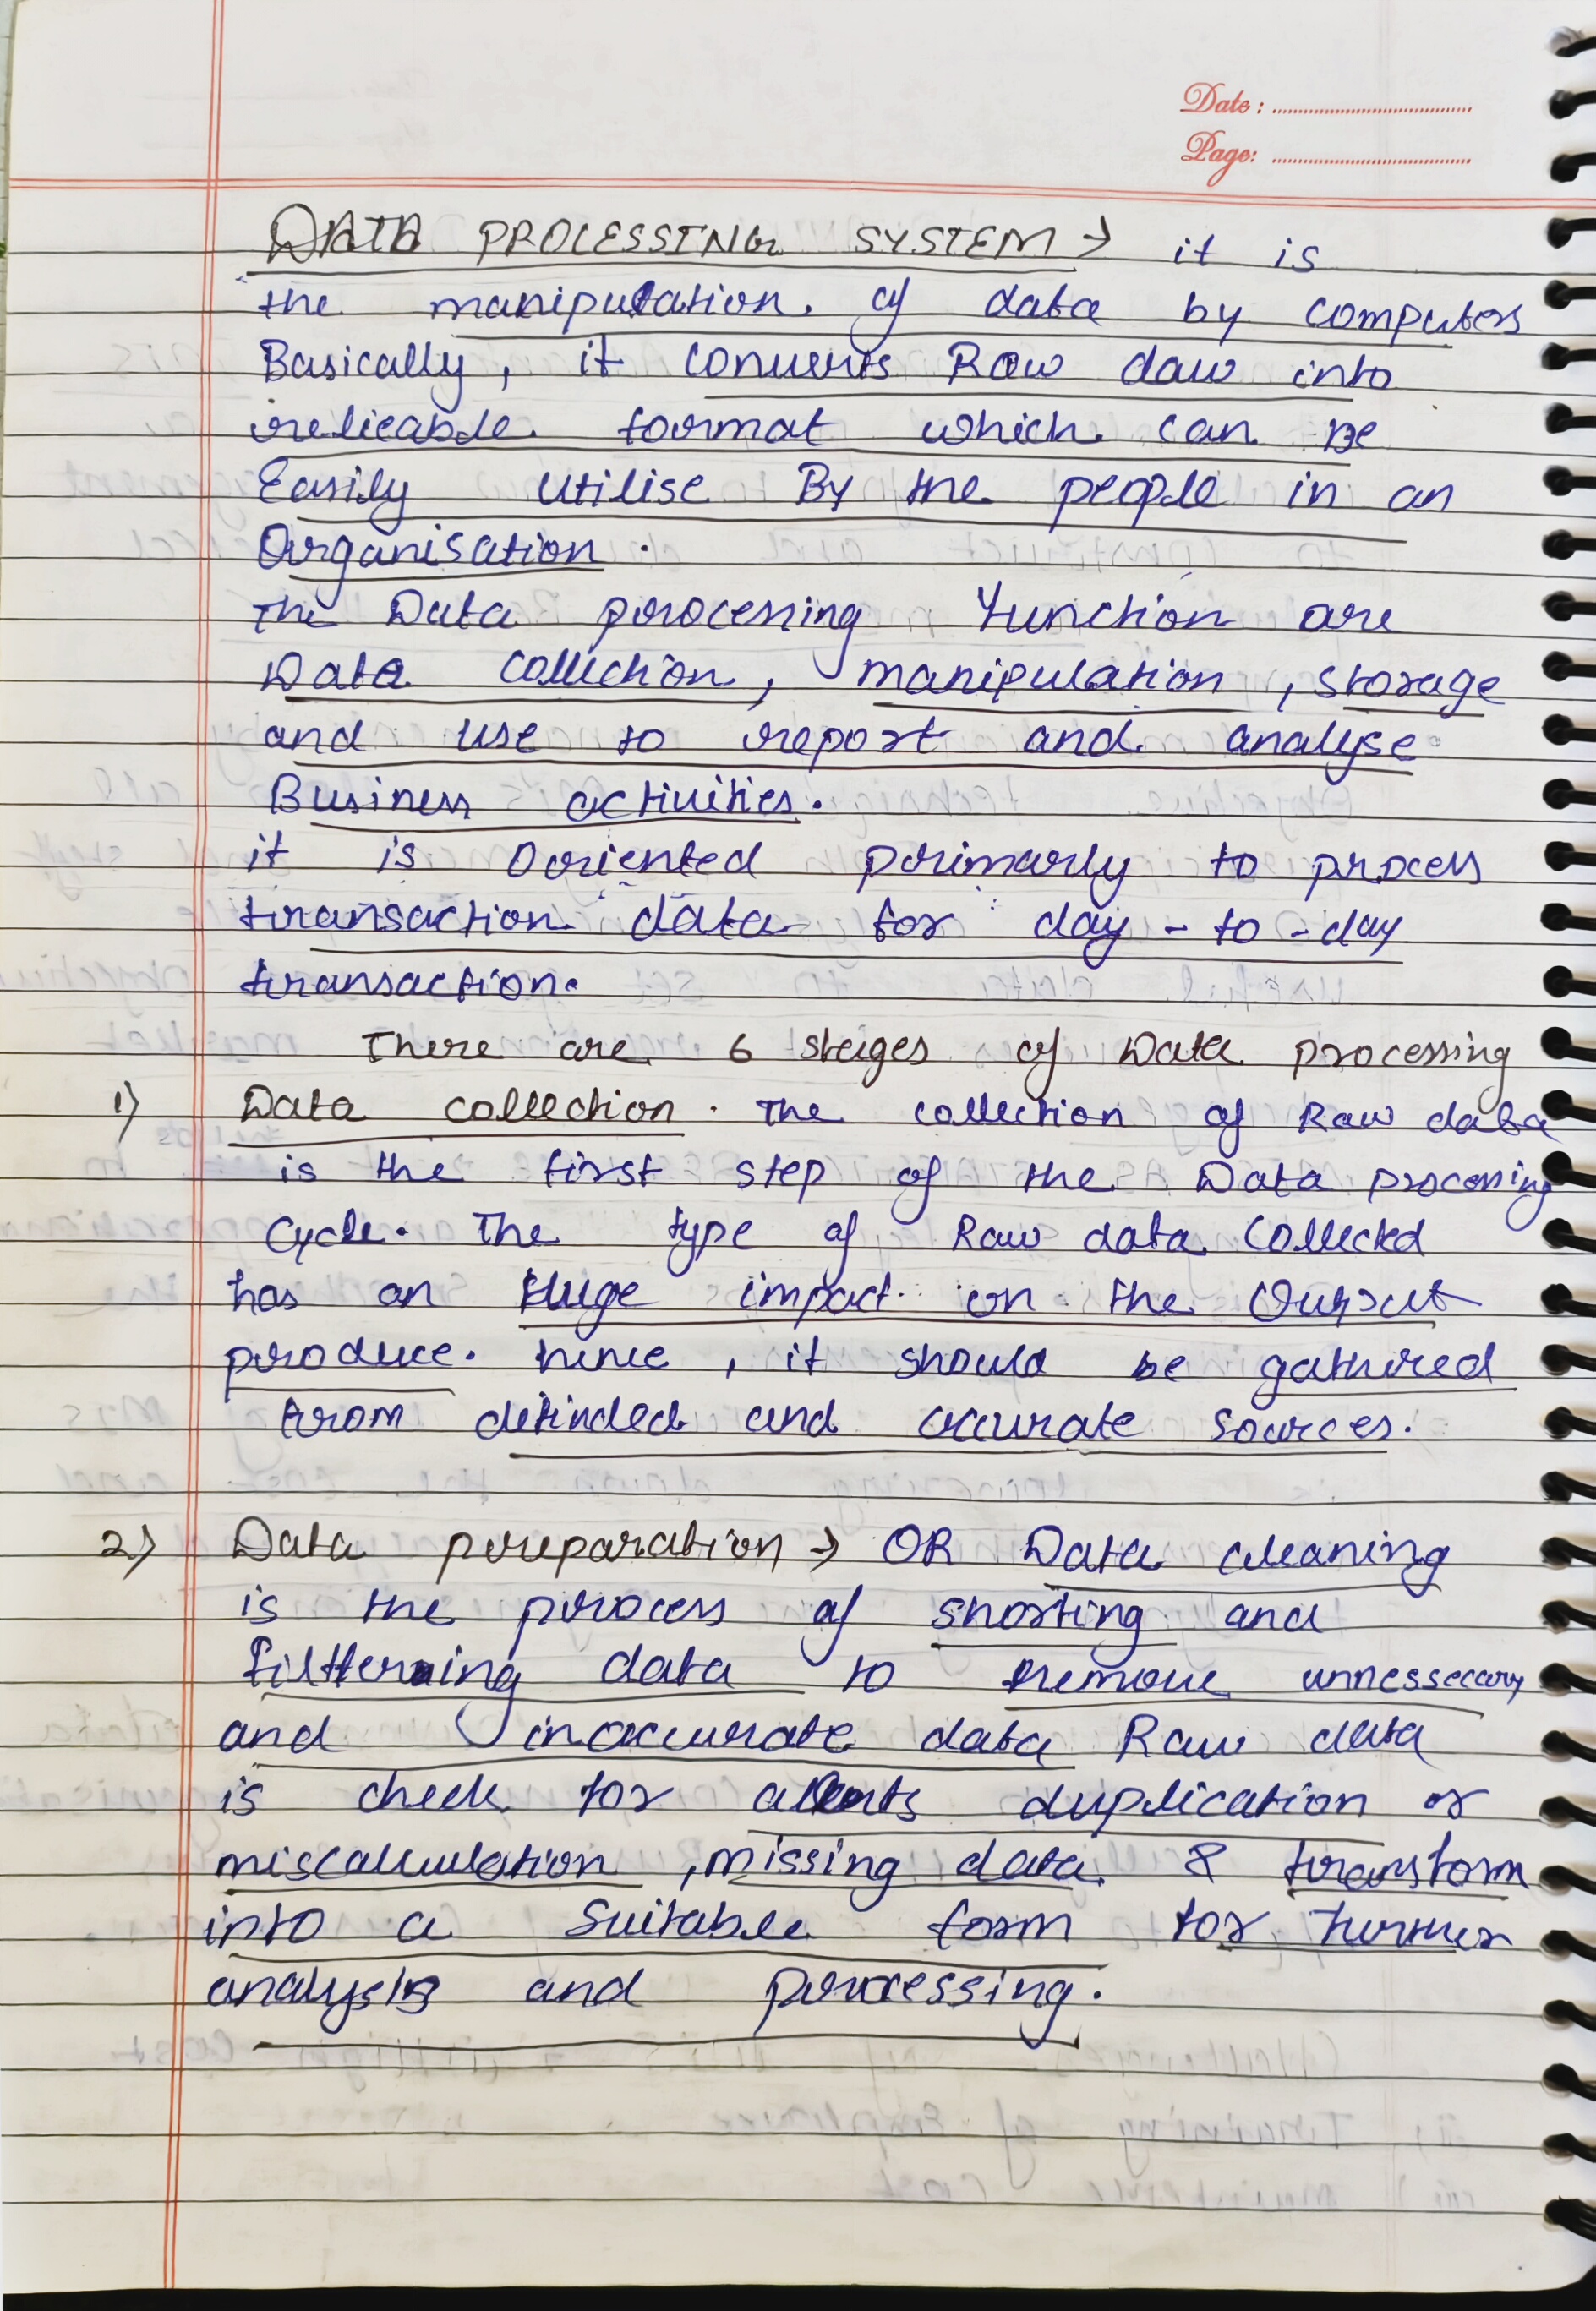 Date :
Page:
DATA PROCESSING SYSTEM → it is
the manipulation. of data by computers
Basically, it converts Raw daw into
relieable. format which can be
Easily utilise By the people in an
Organisation.
The Data processing Function are
Data collection, manipulation, storage
and use to report and analyse
Business activities.
it is Ooriented primarly to process
transaction data for day-to-day
transaction.
There are 6 staiges of Data processing
1) Data collection. The collection of Raw data
is the first step of the Data processing
cycle. The type of Raw data collected
has an Huge impact on the Output
produce. hence, it should be gathered
from definded and accurate sources.
2) Data preparation → OR Data cleaning
is the process of shorting and
filttering data to remove unnessecary
and inaccurate data Raw data
is check for duplication or
miscalculation, missing data & transform
into a suitable form for further
analysis and processing.